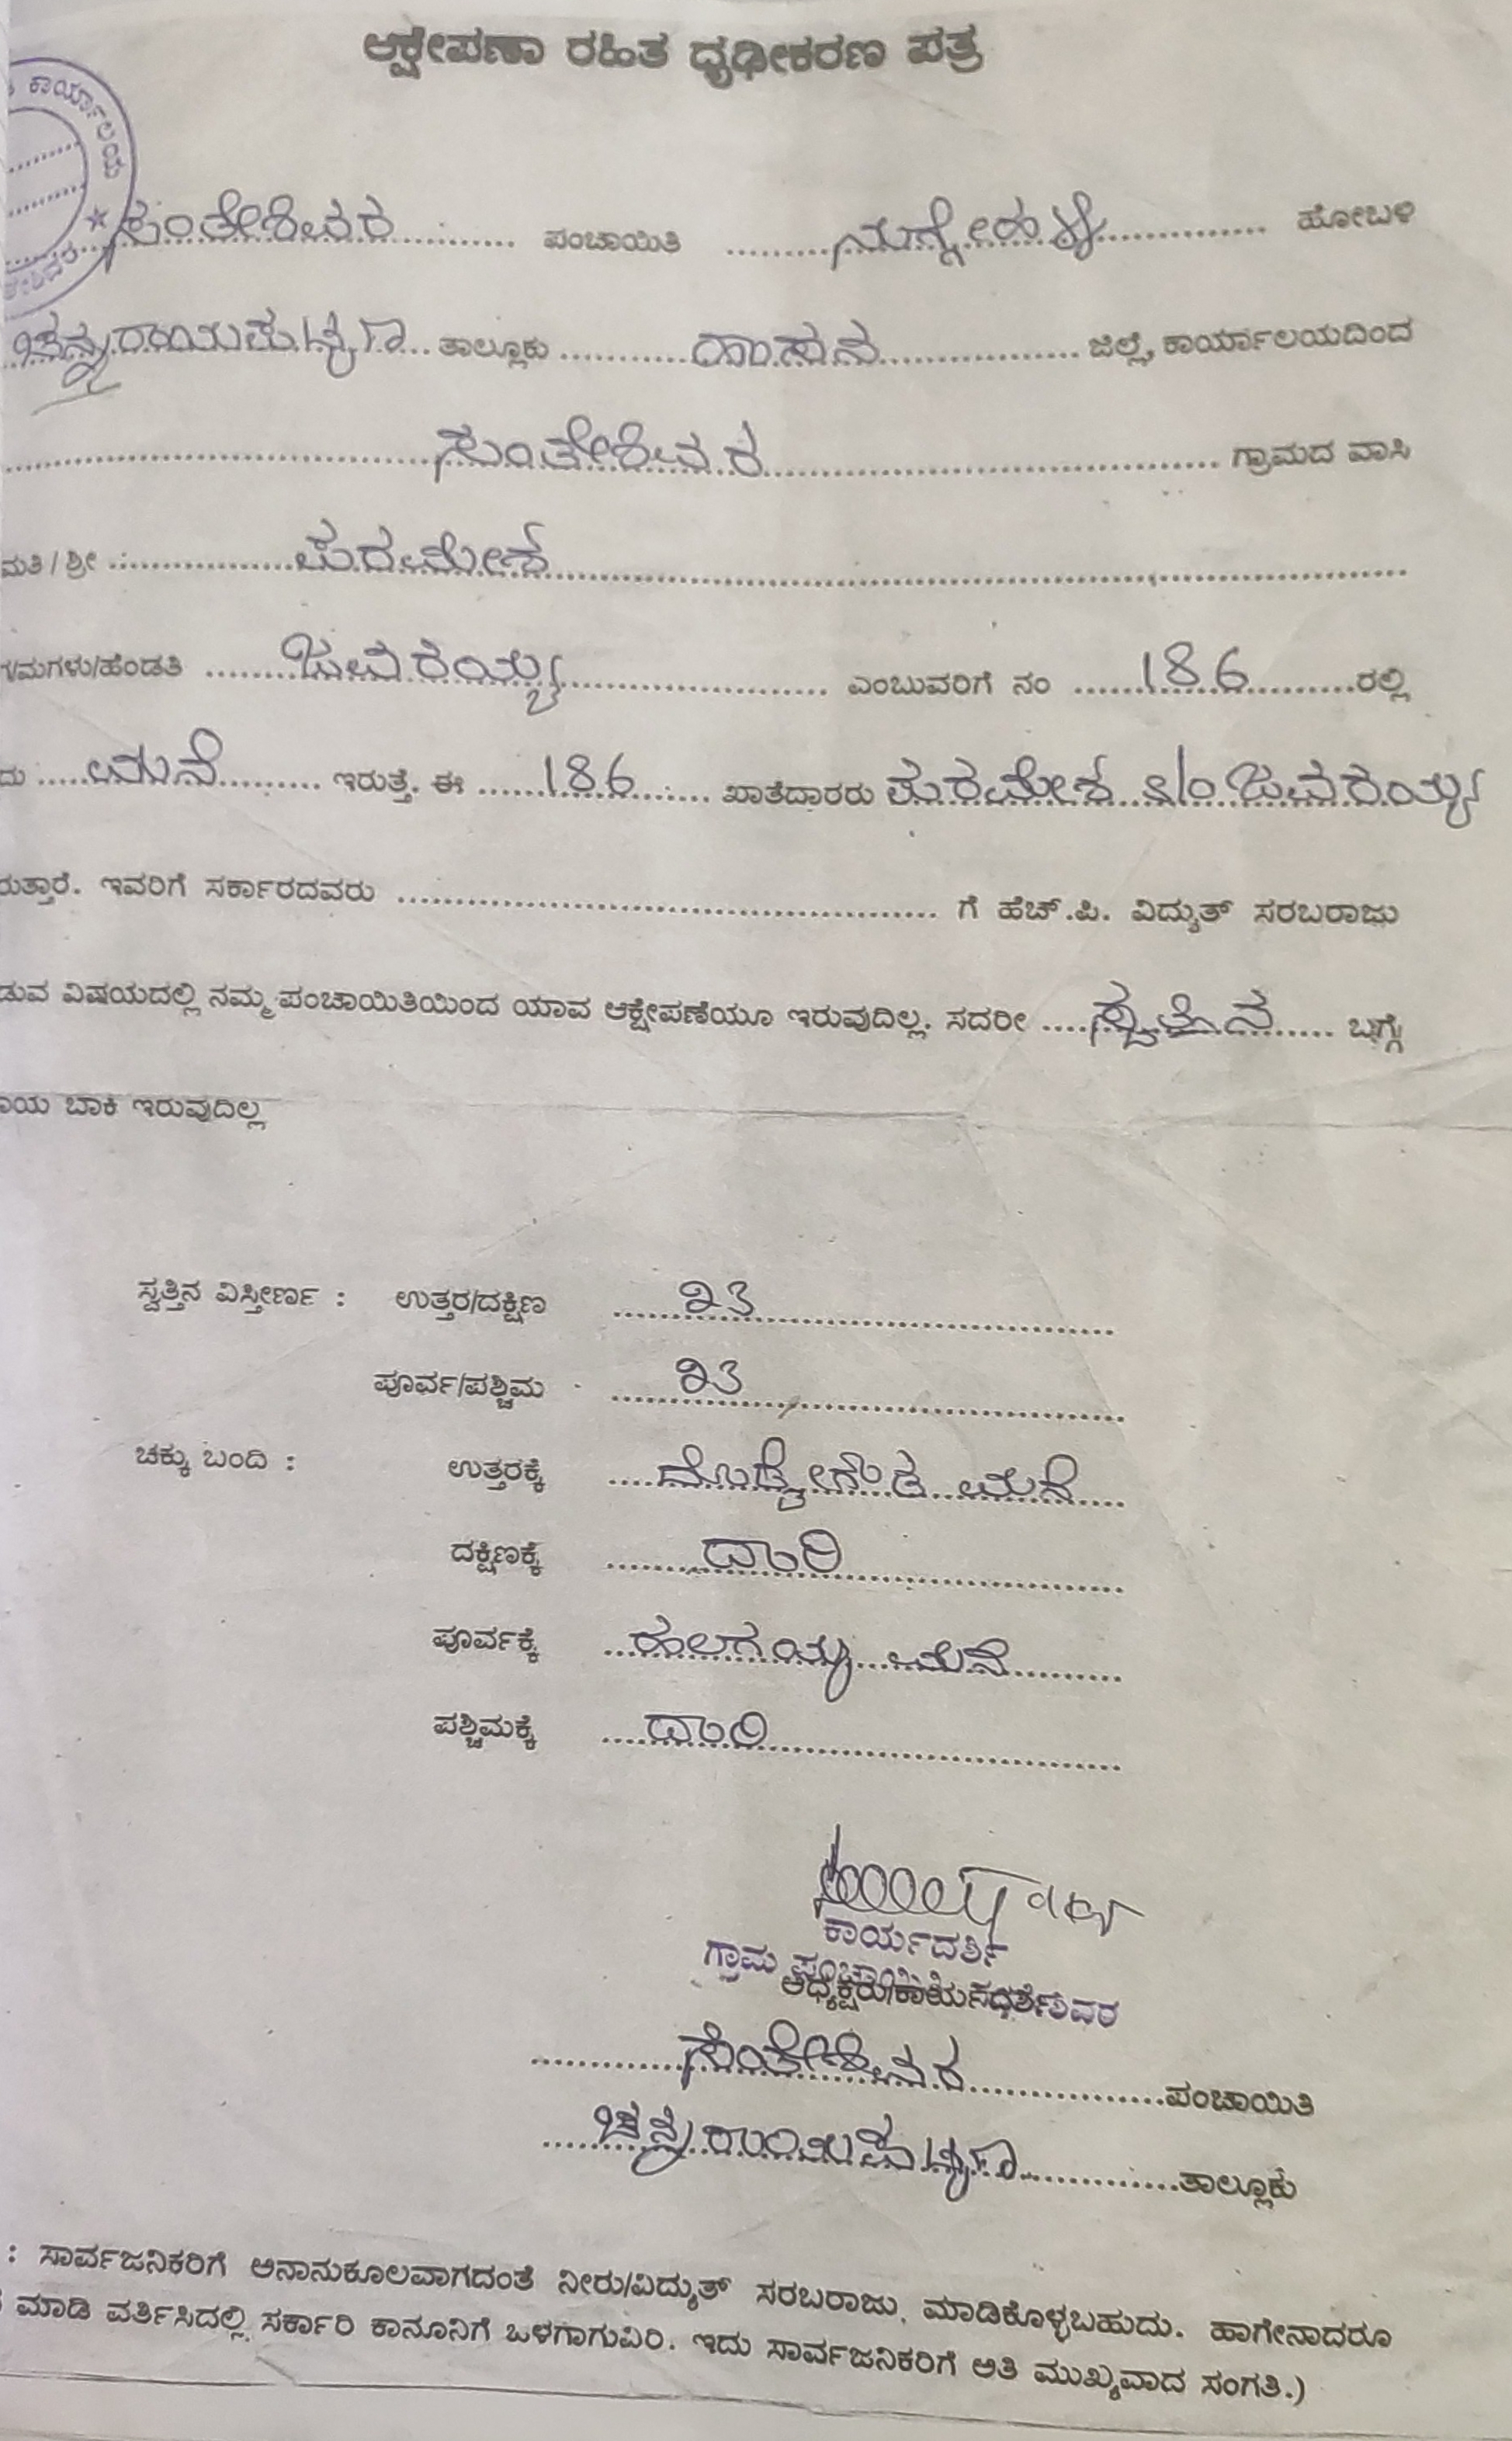 ಆಕ್ಷೇಪಣಾ ರಹಿತ ದೃಢೀಕರಣ ಪತ್ರ
ಕಾರ್ಯಾಲಯ
ಸಂತೇಶಿವರ ಪಂಚಾಯಿತಿ ನುಗ್ಗೇಹಳ್ಳಿ ಹೋಬಳಿ
ಚನ್ನರಾಯಪಟ್ಟಣ ತಾಲ್ಲೂಕು ಹಾಸನ ಜಿಲ್ಲೆ, ಕಾರ್ಯಾಲಯದಿಂದ
ಸಂತೇಶಿವರ ಗ್ರಾಮದ ವಾಸಿ
ಮತಿ / ಶ್ರೀ : ಪರಮೇಶ
/ಮಗಳು/ಹೆಂಡತಿ ಜವರಯ್ಯ ಎಂಬುವರಿಗೆ ನಂ 186 ರಲ್ಲಿ
ದು ಮನೆ ಇರುತ್ತೆ. ಈ 186 ಖಾತೆದಾರರು ಪರಮೇಶ s/o ಜವರಯ್ಯ
ರುತ್ತಾರೆ. ಇವರಿಗೆ ಸರ್ಕಾರದವರು ಗೆ ಹೆಚ್.ಪಿ. ವಿದ್ಯುತ್ ಸರಬರಾಜು
ಡುವ ವಿಷಯದಲ್ಲಿ ನಮ್ಮ ಪಂಚಾಯಿತಿಯಿಂದ ಯಾವ ಆಕ್ಷೇಪಣೆಯೂ ಇರುವುದಿಲ್ಲ. ಸದರೀ ಸ್ವತ್ತಿನ ಬಗ್ಗೆ
ಾಯ ಬಾಕಿ ಇರುವುದಿಲ್ಲ
ಸ್ವತ್ತಿನ ವಿಸ್ತೀರ್ಣ : ಉತ್ತರ/ದಕ್ಷಿಣ 23
ಪೂರ್ವ/ಪಶ್ಚಿಮ 23
ಚಕ್ಕು ಬಂದಿ : ಉತ್ತರಕ್ಕೆ ದೊಡ್ಡೇಗೌಡ ಮನೆ
ದಕ್ಷಿಣಕ್ಕೆ ದಾರಿ
ಪೂರ್ವಕ್ಕೆ ಹಲಗಯ್ಯ ಮನೆ
ಪಶ್ಚಿಮಕ್ಕೆ ದಾರಿ
ಕಾರ್ಯದರ್ಶಿ
ಗ್ರಾಮ ಪಂಚಾಯಿತಿ ಸಂತೇಶಿವರ
ಅಧ್ಯಕ್ಷರು/ಕಾರ್ಯದರ್ಶಿ
ಸಂತೇಶಿವರ ಪಂಚಾಯಿತಿ
ಚನ್ನರಾಯಪಟ್ಟಣ ತಾಲ್ಲೂಕು
: ಸಾರ್ವಜನಿಕರಿಗೆ ಅನಾನುಕೂಲವಾಗದಂತೆ ನೀರು/ವಿದ್ಯುತ್ ಸರಬರಾಜು ಮಾಡಿಕೊಳ್ಳಬಹುದು. ಹಾಗೇನಾದರೂ
ಮಾಡಿ ವರ್ತಿಸಿದಲ್ಲಿ ಸರ್ಕಾರಿ ಕಾನೂನಿಗೆ ಒಳಗಾಗುವಿರಿ. ಇದು ಸಾರ್ವಜನಿಕರಿಗೆ ಅತಿ ಮುಖ್ಯವಾದ ಸಂಗತಿ.)